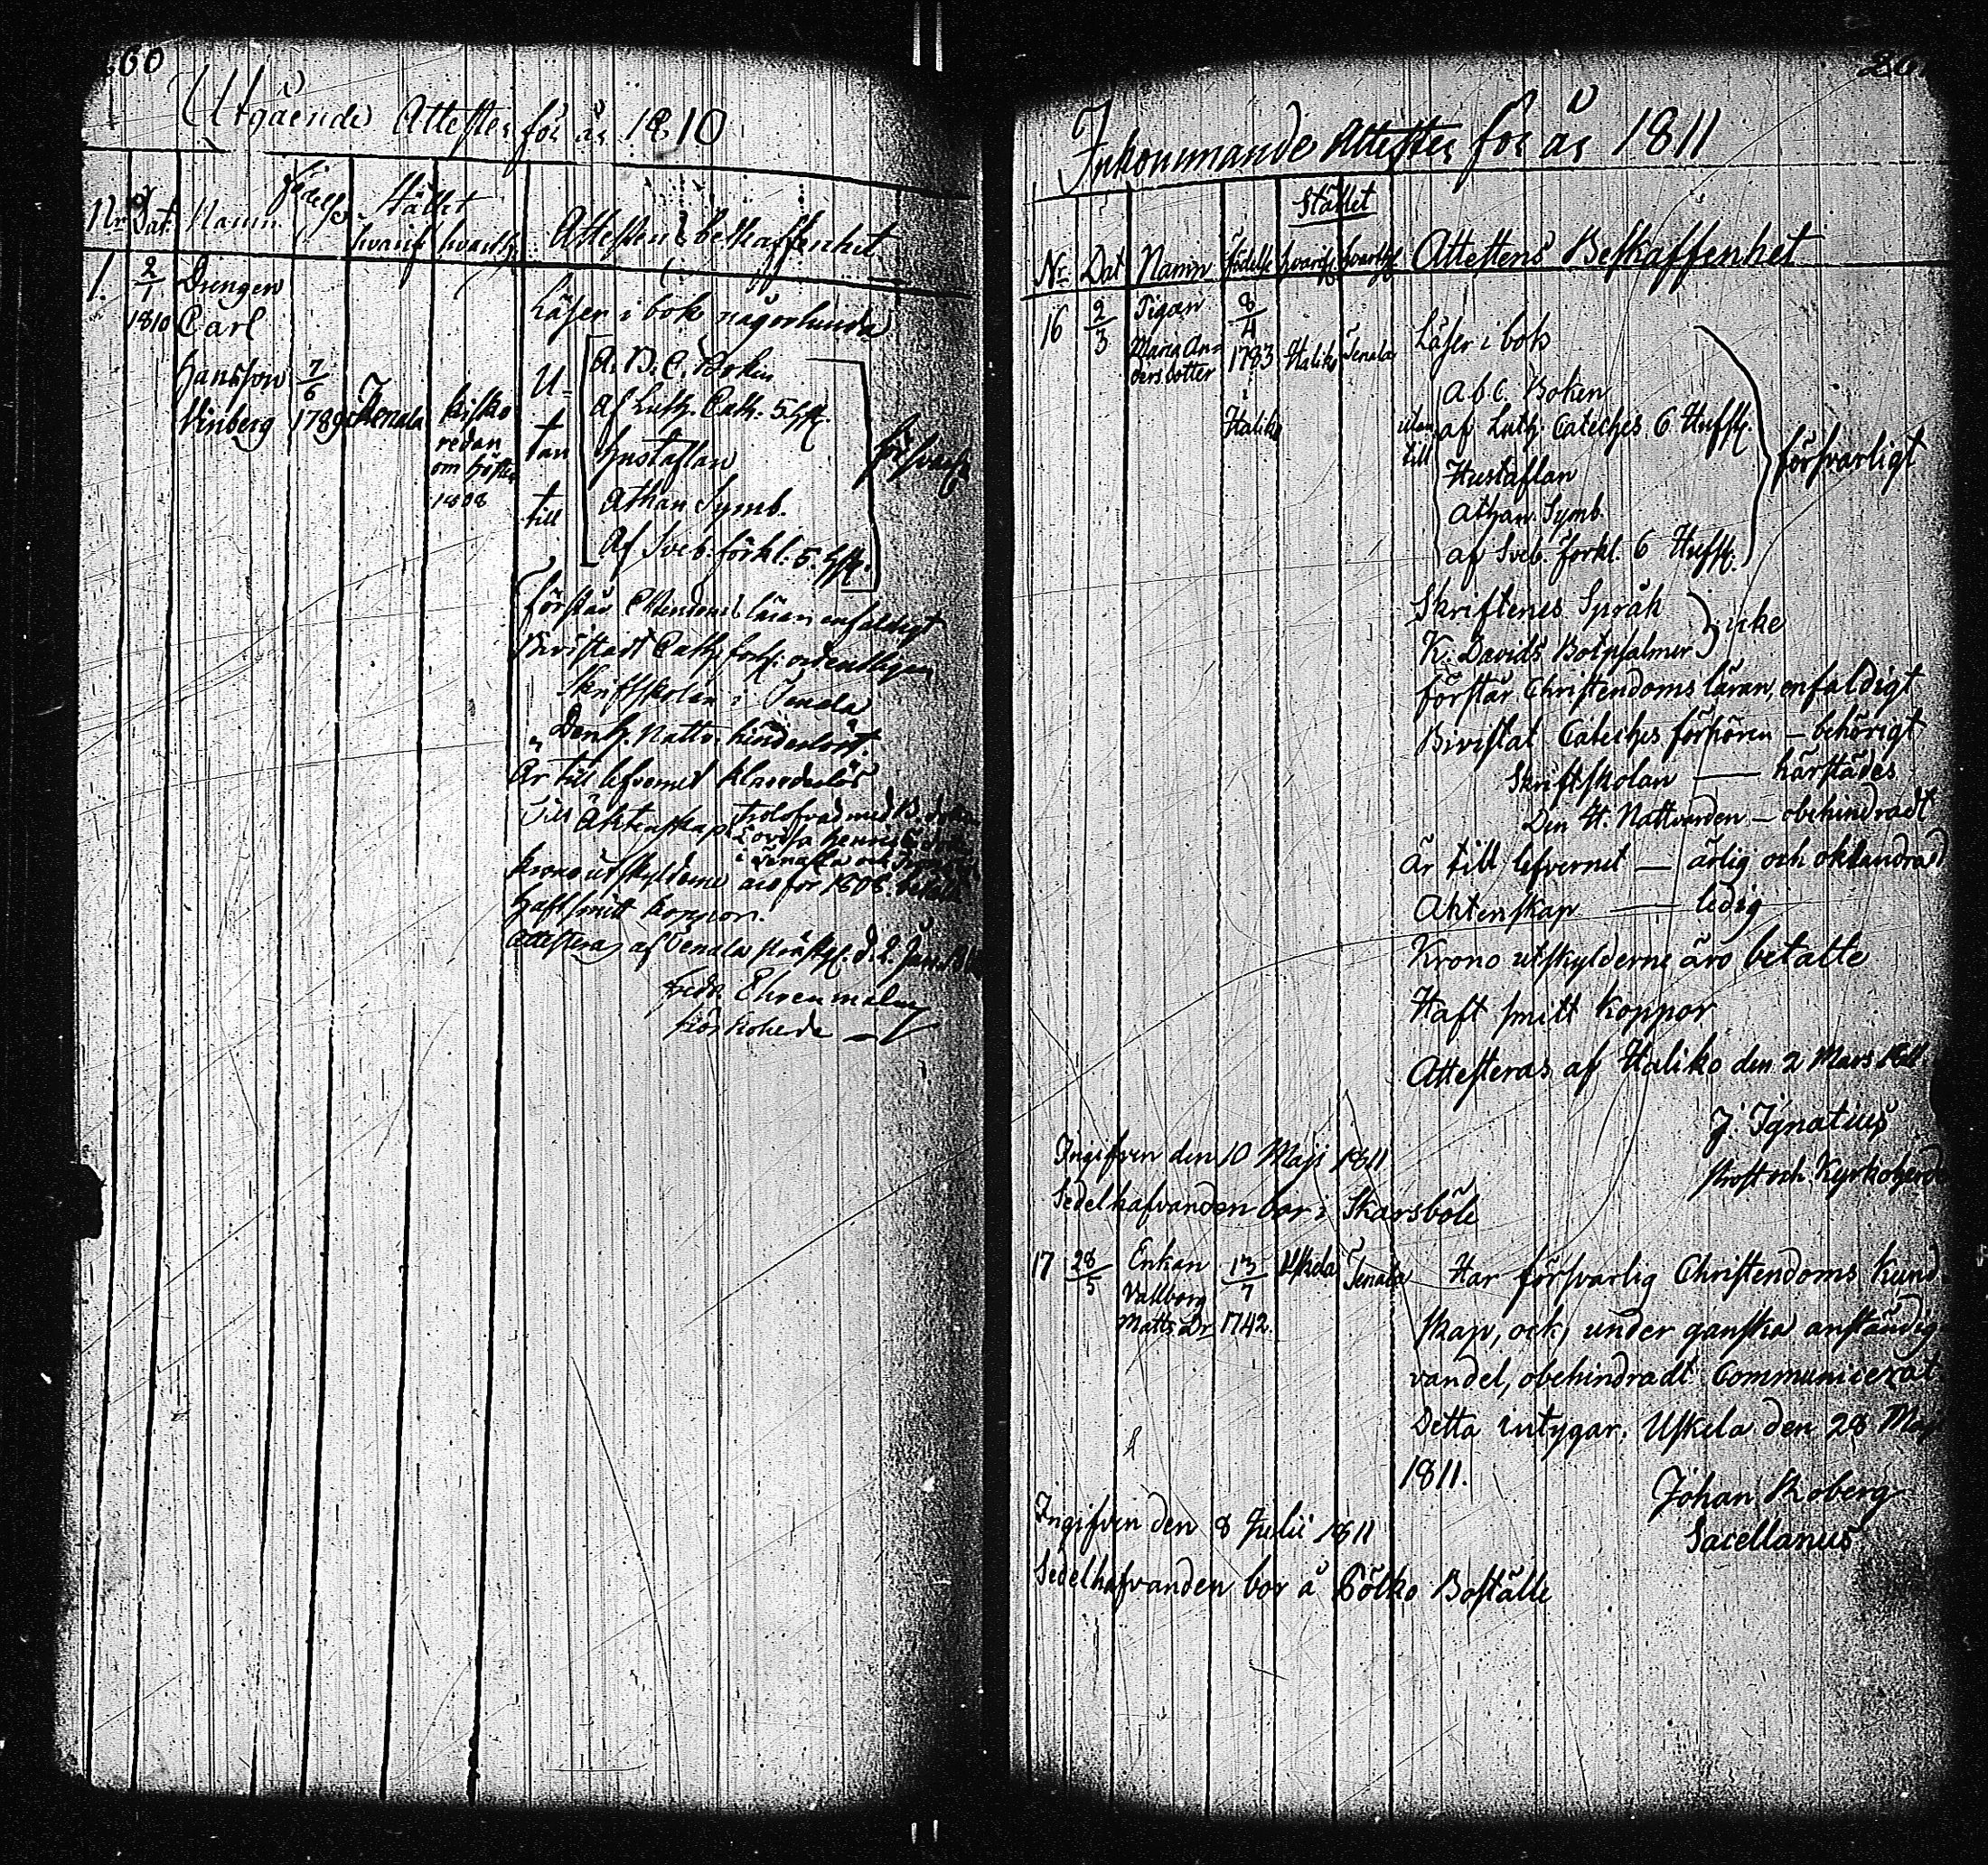 60
Utgående Attester för år 1810
Nr Dat. Namn Födelse Stället hvarifr hvarth Attestens beskaffenhet
1. 2/1 1810 Drengen Carl Hansson Winberg 7/6 1789 Tenala kisko redan om hösten 1808
Läser i bok någorlunda
U-tan till
A. B. C. Boken
Af Luth. Cath. 5 Hfst.
Hustaflan
Athan Symb.
Af Sveb. förkl. 5. Hfst.
försvarl.
Förstår Christendoms läran enfaldigt
Bivistadt Cath. förh. ordentligen
Skriftskolan i Tenala
Den h. Nattv. hinderlöst.
Är till lefvernet klanderlös
Till Äktenskap trolofvad med
Lovisa
i Tenala och
Krono utskylderne äro för 1808. betalt
Haft smitt koppor.
Attesteras af Tenala d. 2. Jan.
Fredr. Ehrenmalm
Kyrkoherde
Inkommande Attester för år 1811
Stället
Nr. Dat Namn Födelse hvarifr hvarth Attestens Beskaffenhet
16 2/3 Pigan Maria Andersdotter 8/4 1783 i Haliko Haliko Tenala
Läser i bok
utan till
a b c. Boken
af Luth. Cateches. 6 Hufst.
Hustaflan
Athan. Symb.
af Sveb. förkl. 6 Hufst.
försvarligt
Skriftenes Språk
K. Davids Botpsalmer
icke
förstår Christendoms läran, enfaldigt
Bivistat Cateches förhören — behörigt
Skriftskolan — härstädes
Den H. Nattvarden — obehindradt
Är till lefvernet — ärlig och oklandrad
Äktenskap — ledig
Krono utskylderne äro betalte
Haft smitt koppor
Attesteras af Haliko den 2 Mars 1811
J. Ignatius
Prost och Kyrkoherde
Ingifven den 10 Maji 1811
Sedelhafvanden bor i Skarsböle
17 28/5 Enkan Vallborg Matts Dr 13/7 1742. Uskela Tenala
Har försvarlig Christendoms Kund-
skap, och, under ganska anständig
vandel, obehindradt Communicerat
Detta intygar. Uskela den 28 Maj
1811.
Johan Roberg
Sacellanus
Ingifven den 8 Julii 1811
Sedelhafvanden bor å Bölko Boställe